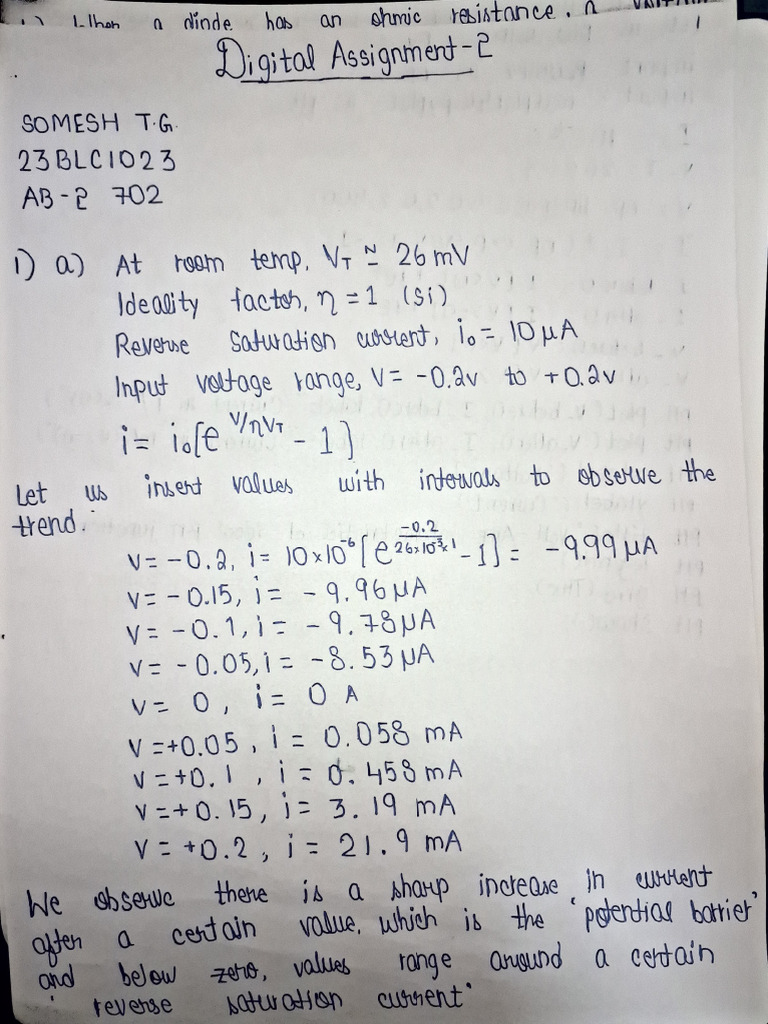 1) When a diode has an ohmic resistance, a
Digital Assignment-2
SOMESH T.G.
23BLC1023
AB-2 702
1) a) At room temp, V_T ≃ 26 mV
Ideality factor, η = 1 (Si)
Reverse saturation current, i₀ = 10 μA
Input voltage range, V = -0.2v to +0.2v
i = i₀[e^(V/ηV_T) - 1]
Let us insert values with intervals to observe the
trend.
V = -0.2, i = 10×10⁻⁶ [e^(-0.2/(26×10⁻³×1)) - 1] = -9.99 μA
V = -0.15, i = -9.96 μA
V = -0.1, i = -9.78 μA
V = -0.05, i = -8.53 μA
V = 0, i = 0 A
V = +0.05, i = 0.058 mA
V = +0.1, i = 0.458 mA
V = +0.15, i = 3.19 mA
V = +0.2, i = 21.9 mA
We observe there is a sharp increase in current
after a certain value, which is the 'potential barrier'
and below zero, values range around a certain
'reverse saturation current'